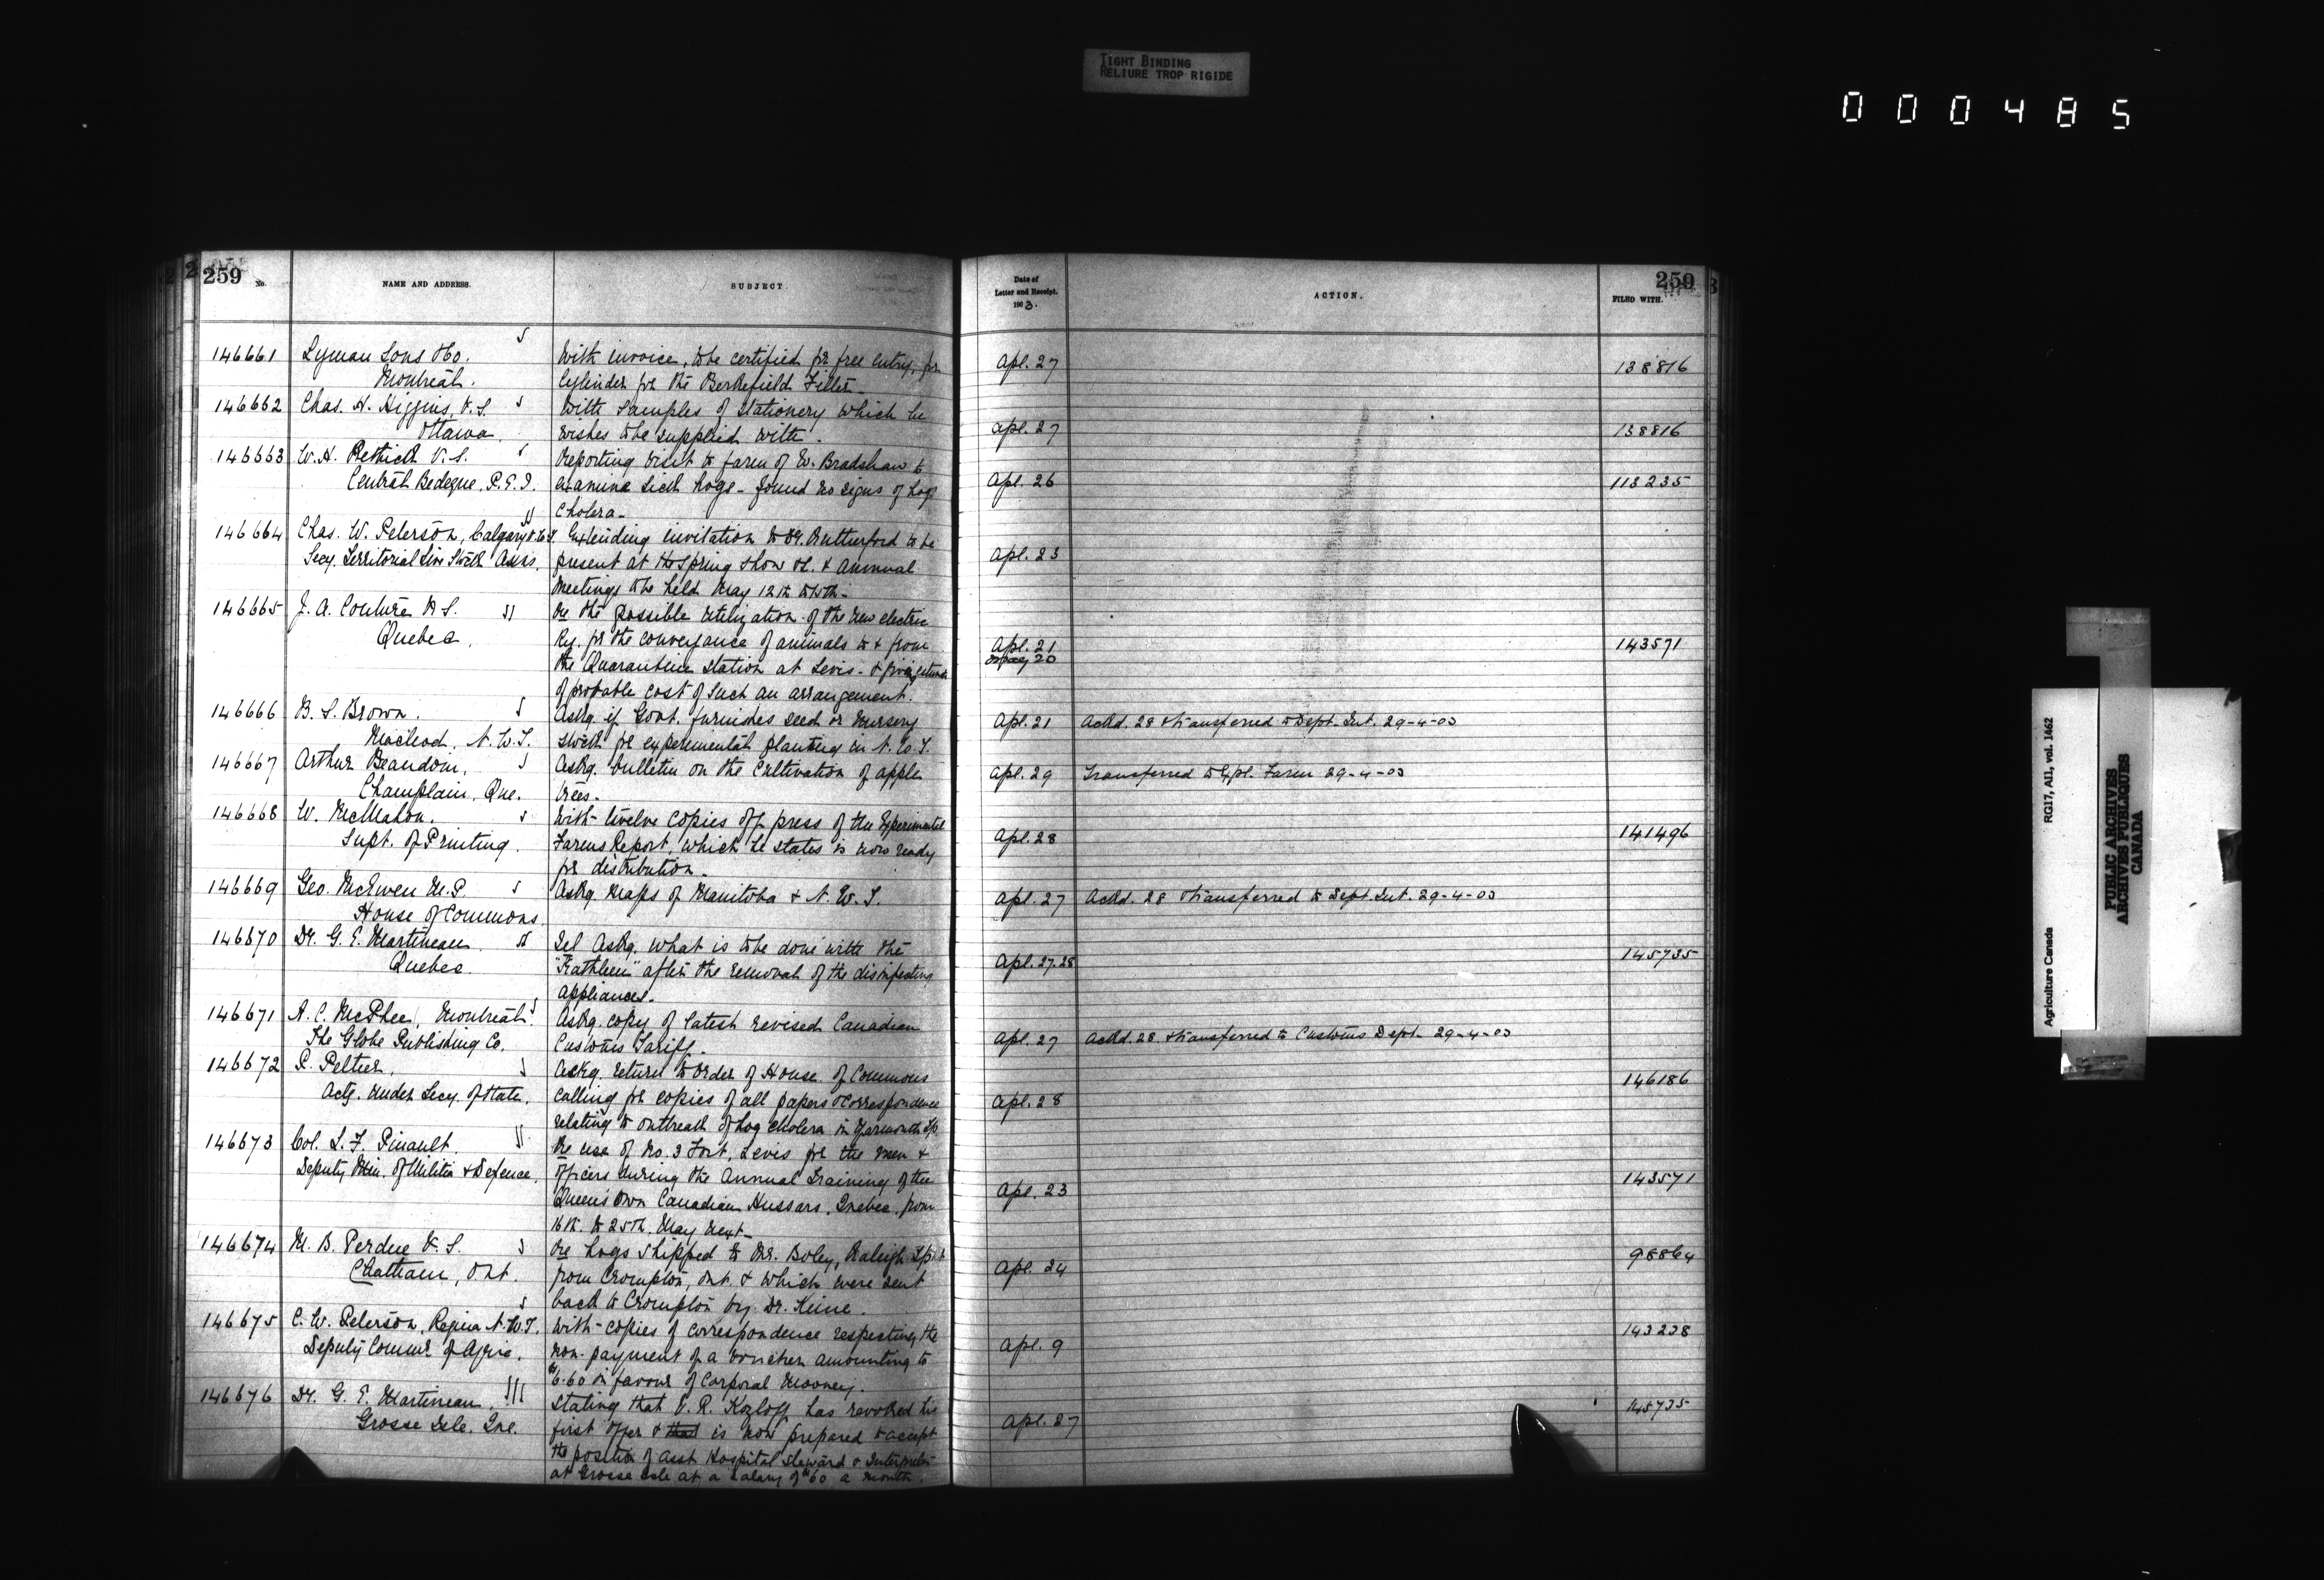 TIGHT BINDING
RELIURE TROP RIGIDE
000485
259
No.
NAME AND ADDRESS.
SUBJECT.
Date of
Letter and Receipt.
1903.
ACTION.
259
FILED WITH.
146661 Lyman Sons & Co. With invoice, to be certified for free entry, for
Montreal. Cylinder for the Berkefield Filter. Apl. 27 138816
146662 Chas. H. Higgins, V.S. With samples of stationery which he
Ottawa. wishes to be supplied with. Apl. 27 138816
146663 W.H. Pethick V.S. Reporting visit to farm of W. Bradshaw to
Central Bedeque, P.E.I. examine sick hogs - found no signs of hog Apl. 26 113235
Cholera.
146664 Chas. W. Peterson, Calgary N.W.T. Extending invitation to Dr. Rutherford to be
Secy. Territorial Live Stock Assns. present at the Spring Show &c. & annual Apl. 23
meetings to be held May 12th to 15th.
146665 J. A. Couture V.S. Re the possible utilization of the new electric
Quebec. Ry. for the conveyance of animals to & from Apl. 21 143571
the Quarantine Station at Levis - & giving estimate May 20
of probable cost of such an arrangement.
146666 B. S. Brown. Askg. if Govt. furnishes seed or nursery Apl. 21 Ackd. 28 & transferred to Dept. Int. 29-4-03
Macleod, N.W.T. stock for experimental planting in N.W.T.
146667 Arthur Beaudoin, Askg. bulletin on the cultivation of apple Apl. 29 Transferred to Expl. Farm 29-4-03
Champlain, Que. trees.
146668 W. McMahon. With twelve copies off press of the Experimental
Supt. of Printing. Farms Report, which he states is now ready Apl. 28 141496
for distribution.
146669 Geo. McEwen M.P. Askg. Maps of Manitoba & N.W.T. Apl. 27 Ackd. 28 & transferred to Dept. Int. 29-4-03
House of Commons.
146670 Dr. G. E. Martineau. Tel. Askg. what is to be done with the
Quebec. "Kathleen" after the removal of the disinfecting Apl. 27.28 145735
appliances.
146671 A. C. McPhee, Montreal. Askg. copy of latest revised Canadian
The Globe Publishing Co. Customs Tariff. Apl. 27 Ackd. 28 & transferred to Customs Dept. 29-4-03
146672 P. Peltier. Askg. return to Order of House of Commons
Actg. Under Secy. of State. calling for copies of all papers & correspondence Apl. 28 146186
relating to outbreak of hog cholera in Yarmouth Tp.
146673 Col. L. F. Pinault. Re use of No. 3 Fort, Levis for the men &
Deputy Min. of Militia & Defence. officers during the Annual Training of the Apl. 23 143571
Queen's Own Canadian Hussars, Quebec, from
16th. to 25th. May next.
146674 M. B. Perdue V.S. Re hogs shipped to Mr. Boley, Raleigh Tp.
Chatham, Ont. from Crompton, Ont. & which were sent Apl. 24 98864
back to Crompton by Dr. Kime.
146675 C. W. Peterson, Regina N.W.T. With copies of correspondence respecting the
Deputy Commr. of Agric. non-payment of a voucher amounting to Apl. 9 143238
$6.60 in favour of Corporal Mooney.
146676 Dr. G. E. Martineau. Stating that V. R. Kozloff has revoked his
Grosse Isle. Que. first offer & that is now prepared to accept Apl. 27 145735
the position of Asst. Hospital Steward & Interpreter
at Grosse Isle at a salary of $60 a month.
Agriculture Canada RG17, AII, vol. 1462
PUBLIC ARCHIVES
ARCHIVES PUBLIQUES
CANADA